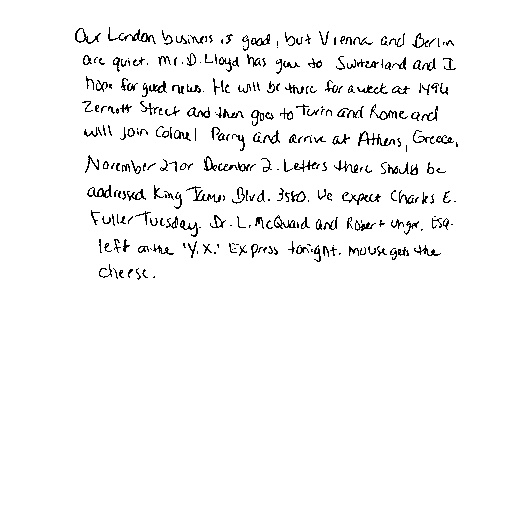 Our London business is good, but Vienna and Berlin
are quiet. Mr. D. Lloyd has gone to Switzerland and I
hope for good news. He will be there for a week at 1496
Zermott Street and then goes to Turin and Rome and
will join Colonel Parry and arrive at Athens, Greece,
November 27 or December 2. Letters there should be
addressed King James Blvd. 3580. We expect Charles E.
Fuller Tuesday. Dr. L. McQuaid and Robert Unger, Esq.
left on the 'Y.X.' Express tonight. Mouse gets the
cheese.